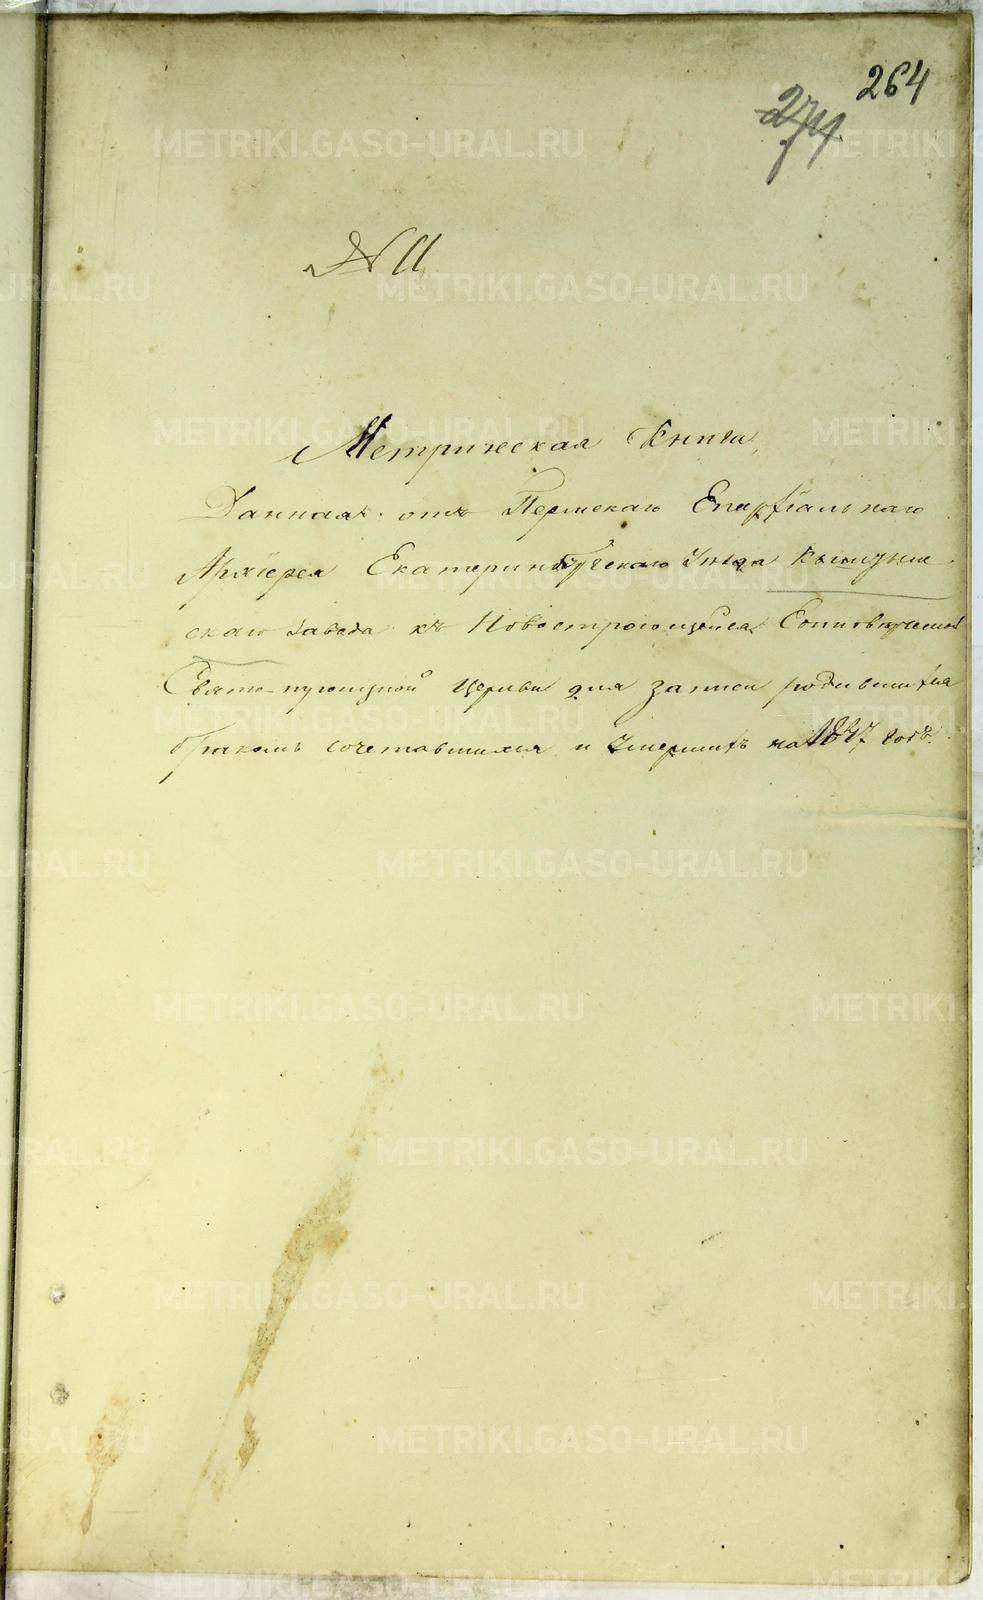 264
274
№ 11
Метрическая Книга,
Данная отъ Пермскаго Епархіальнаго
Архіерея Екатеринбургскаго Уѣзда Кыштым
скаго завода къ Новостроющейся Единоверческой
Свято-троицкой Церкви для записи родившихся
бракомъ сочетавшихся и Умершихъ на 1847 годъ.
METRIKI.GASO-URAL.RU